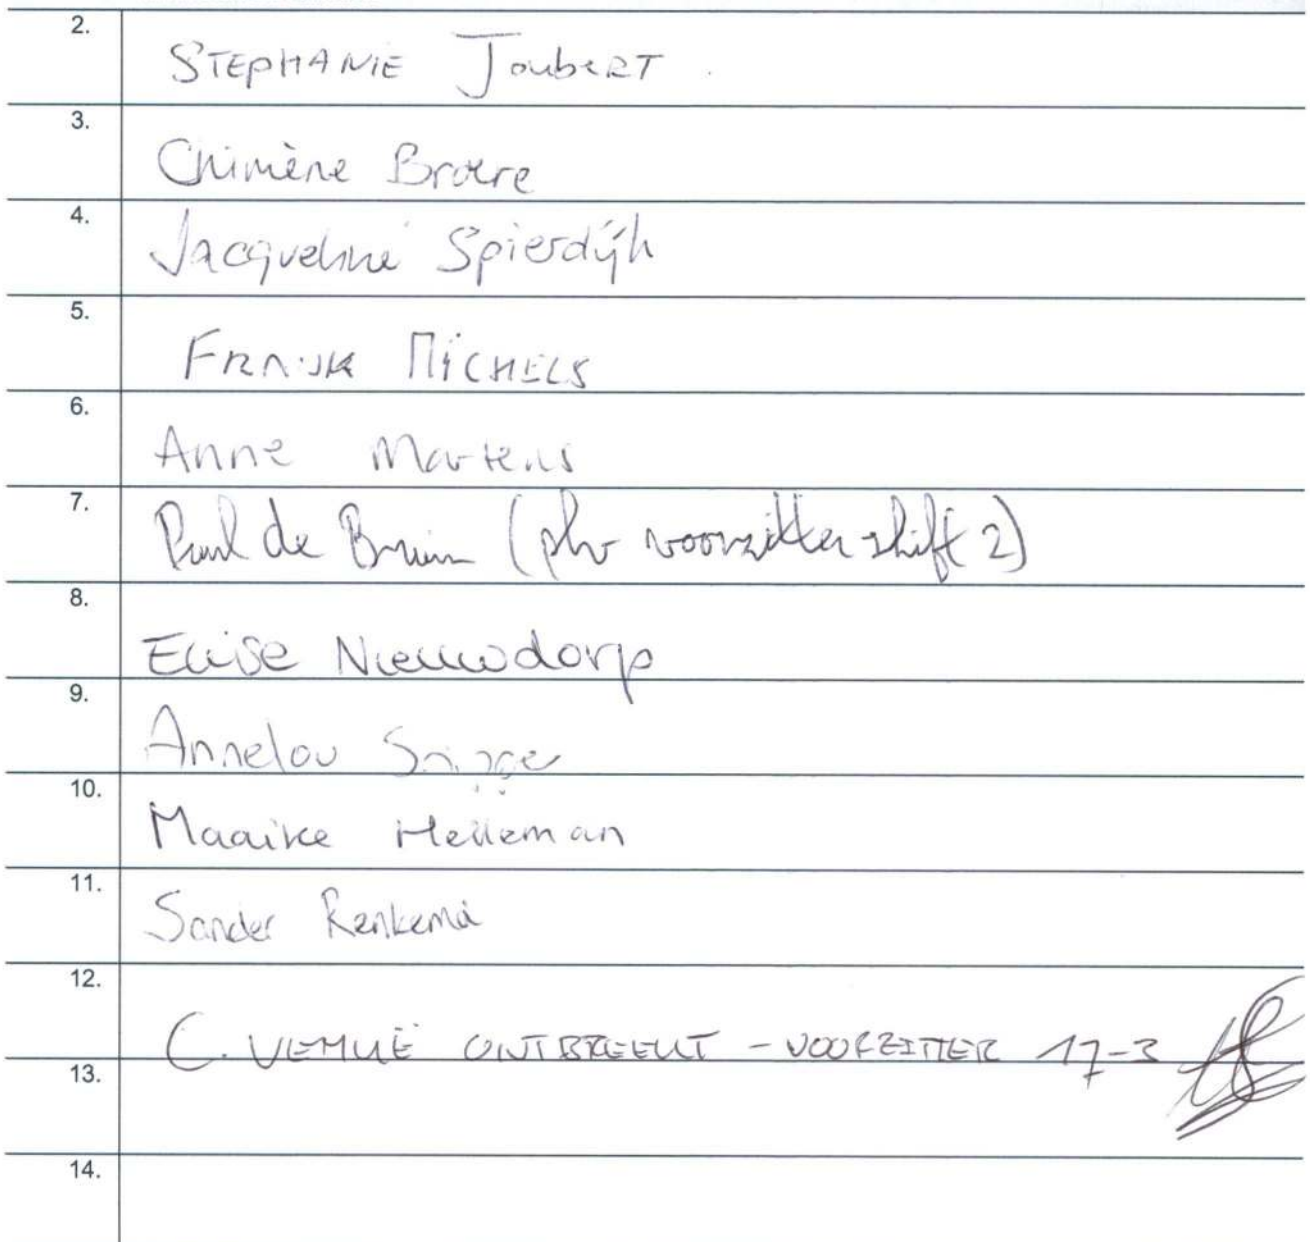 2.
STEPHANIE Joubert.
3.
Chimène Broere
4.
Jacqueline Spierdijk
5.
MICHELS
6.
Anne Martens
7.
Paul de Bruin (plv voorzitter shift 2)
8.
Elise Nieuwdorp
9.
Annelou
10.
Maaike Helleman
11.
Sander Renkema
12.
C. ONTBREEKT - VOORZITTER 17-3
13.
14.